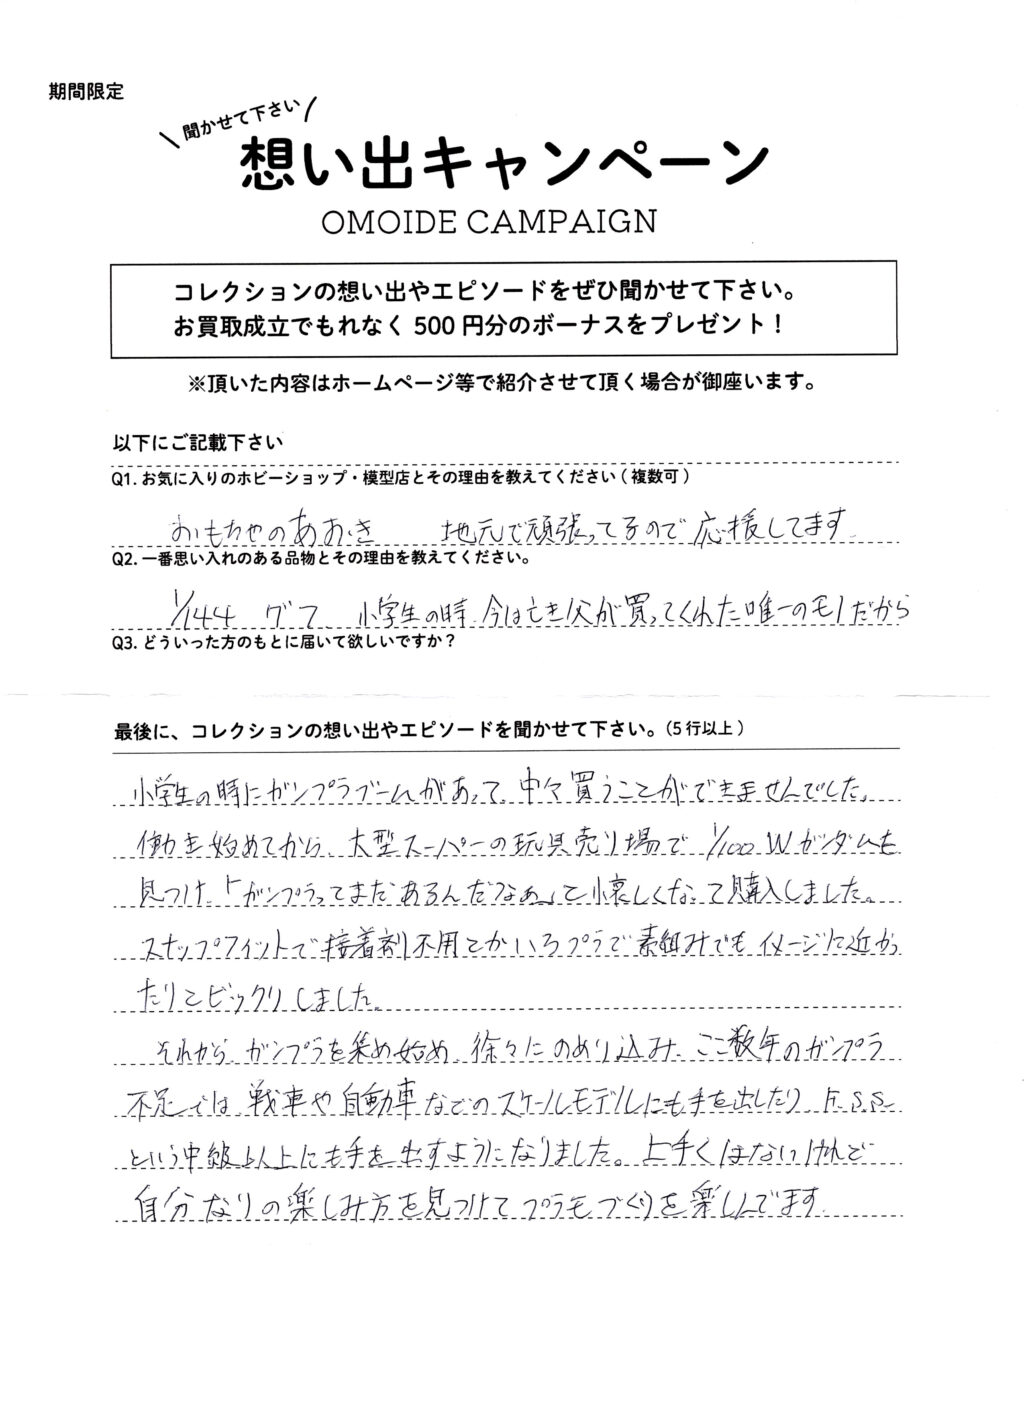 期間限定
聞かせて下さい
想い出キャンペーン
OMOIDE CAMPAIGN
コレクションの想い出やエピソードをぜひ聞かせて下さい。
お買取成立でもれなく 500 円分のボーナスをプレゼント！
※頂いた内容はホームページ等で紹介させて頂く場合が御座います。
以下にご記載下さい
Q1. お気に入りのホビーショップ・模型店とその理由を教えてください ( 複数可 )
おもちゃのあおき 地元で頑張ってるので応援してます
Q2. 一番思い入れのある品物とその理由を教えてください。
1/144 グフ 小学生の時、今は亡き父が買ってくれた唯一のモノだから
Q3. どういった方のもとに届いて欲しいですか？
最後に、コレクションの想い出やエピソードを聞かせて下さい。(5 行以上)
小学生の時にガンプラブームがあって、中々買うことができませんでした。
働き始めてから、大型スーパーの玩具売り場で 1/100 Wガンダムを
見つけ、「ガンプラってまだあるんだなぁ」と懐しくなって購入しました。
スナップフィットで接着剤不用とかいろプラで素組みでもイメージに近かっ
たりとビックリしました。
それから、ガンプラを集め始め、徐々にのめり込み、ここ数年のガンプラ
不足では、戦車や自動車などのスケールモデルにも手を出したり F.S.S
という中級以上にも手を出すようになりました。上手くはないけれど
自分なりの楽しみ方を見つけてプラモづくりを楽しんでます